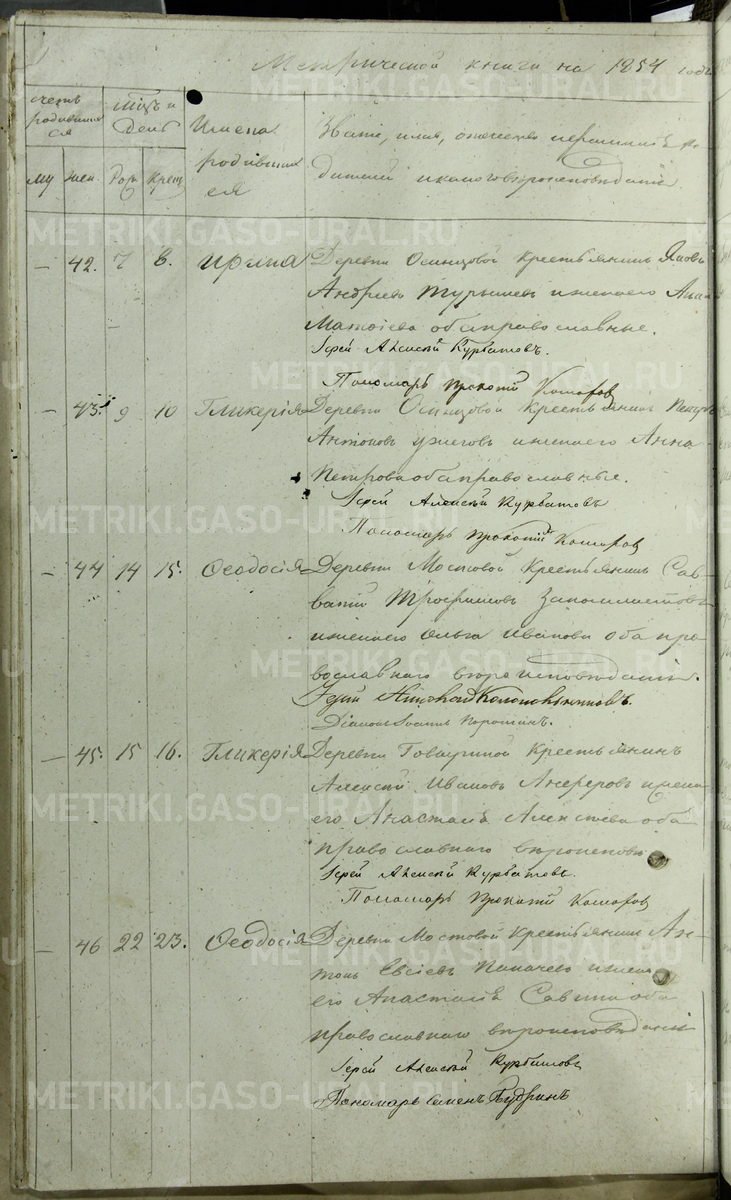 Метрической книги на 1854 годъ
счетъ родившихся
мѣсяцъ и день
Имена родившихся
Званіе, имя, отчество и фамилія родителей и какого вѣроисповѣданія.
му жен. рож крещ
METRIKI.GASO-URAL.RU
— 42. 7 8. Ирина Деревни Осинцовой крестьянинъ Яковъ
Андреевъ и жена его
Матвіева оба православные.
Іерей Алексій Курбатовъ.
Пономарь Прокопій Комаровъ
— 43. 9 10 Гликерія Деревни Осинцовой Крестьянинъ Петръ
Антоновъ и жена его Анна
Петрова оба православные.
Іерей Алексій Курбатовъ
Пономарь Прокопій Комаровъ
— 44 14 15. Ѳеодосія Деревни Мостовой Крестьянинъ Сав-
ватій Трофимовъ
и жена его Ольга Иванова оба пра-
вославнаго вѣроисповѣданія.
Іерей
Діаконъ Іоаннъ Порошинъ.
— 45. 15 16. Гликерія Деревни Крестьянинъ
Алексій Ивановъ и жена
его Анастасія Алексѣева оба
православнаго вѣроисповѣ
Іерей Алексій Курбатовъ.
Пономарь Прокопій Комаровъ
— 46 22 23. Ѳеодосія Деревни Мостовой Крестьянинъ Ан-
тонъ Евсіевъ и жена
его Анастасія Савина оба
православнаго вѣроисповѣданія
Іерей Алексій Курбатовъ
Пономарь Семенъ Кудринъ